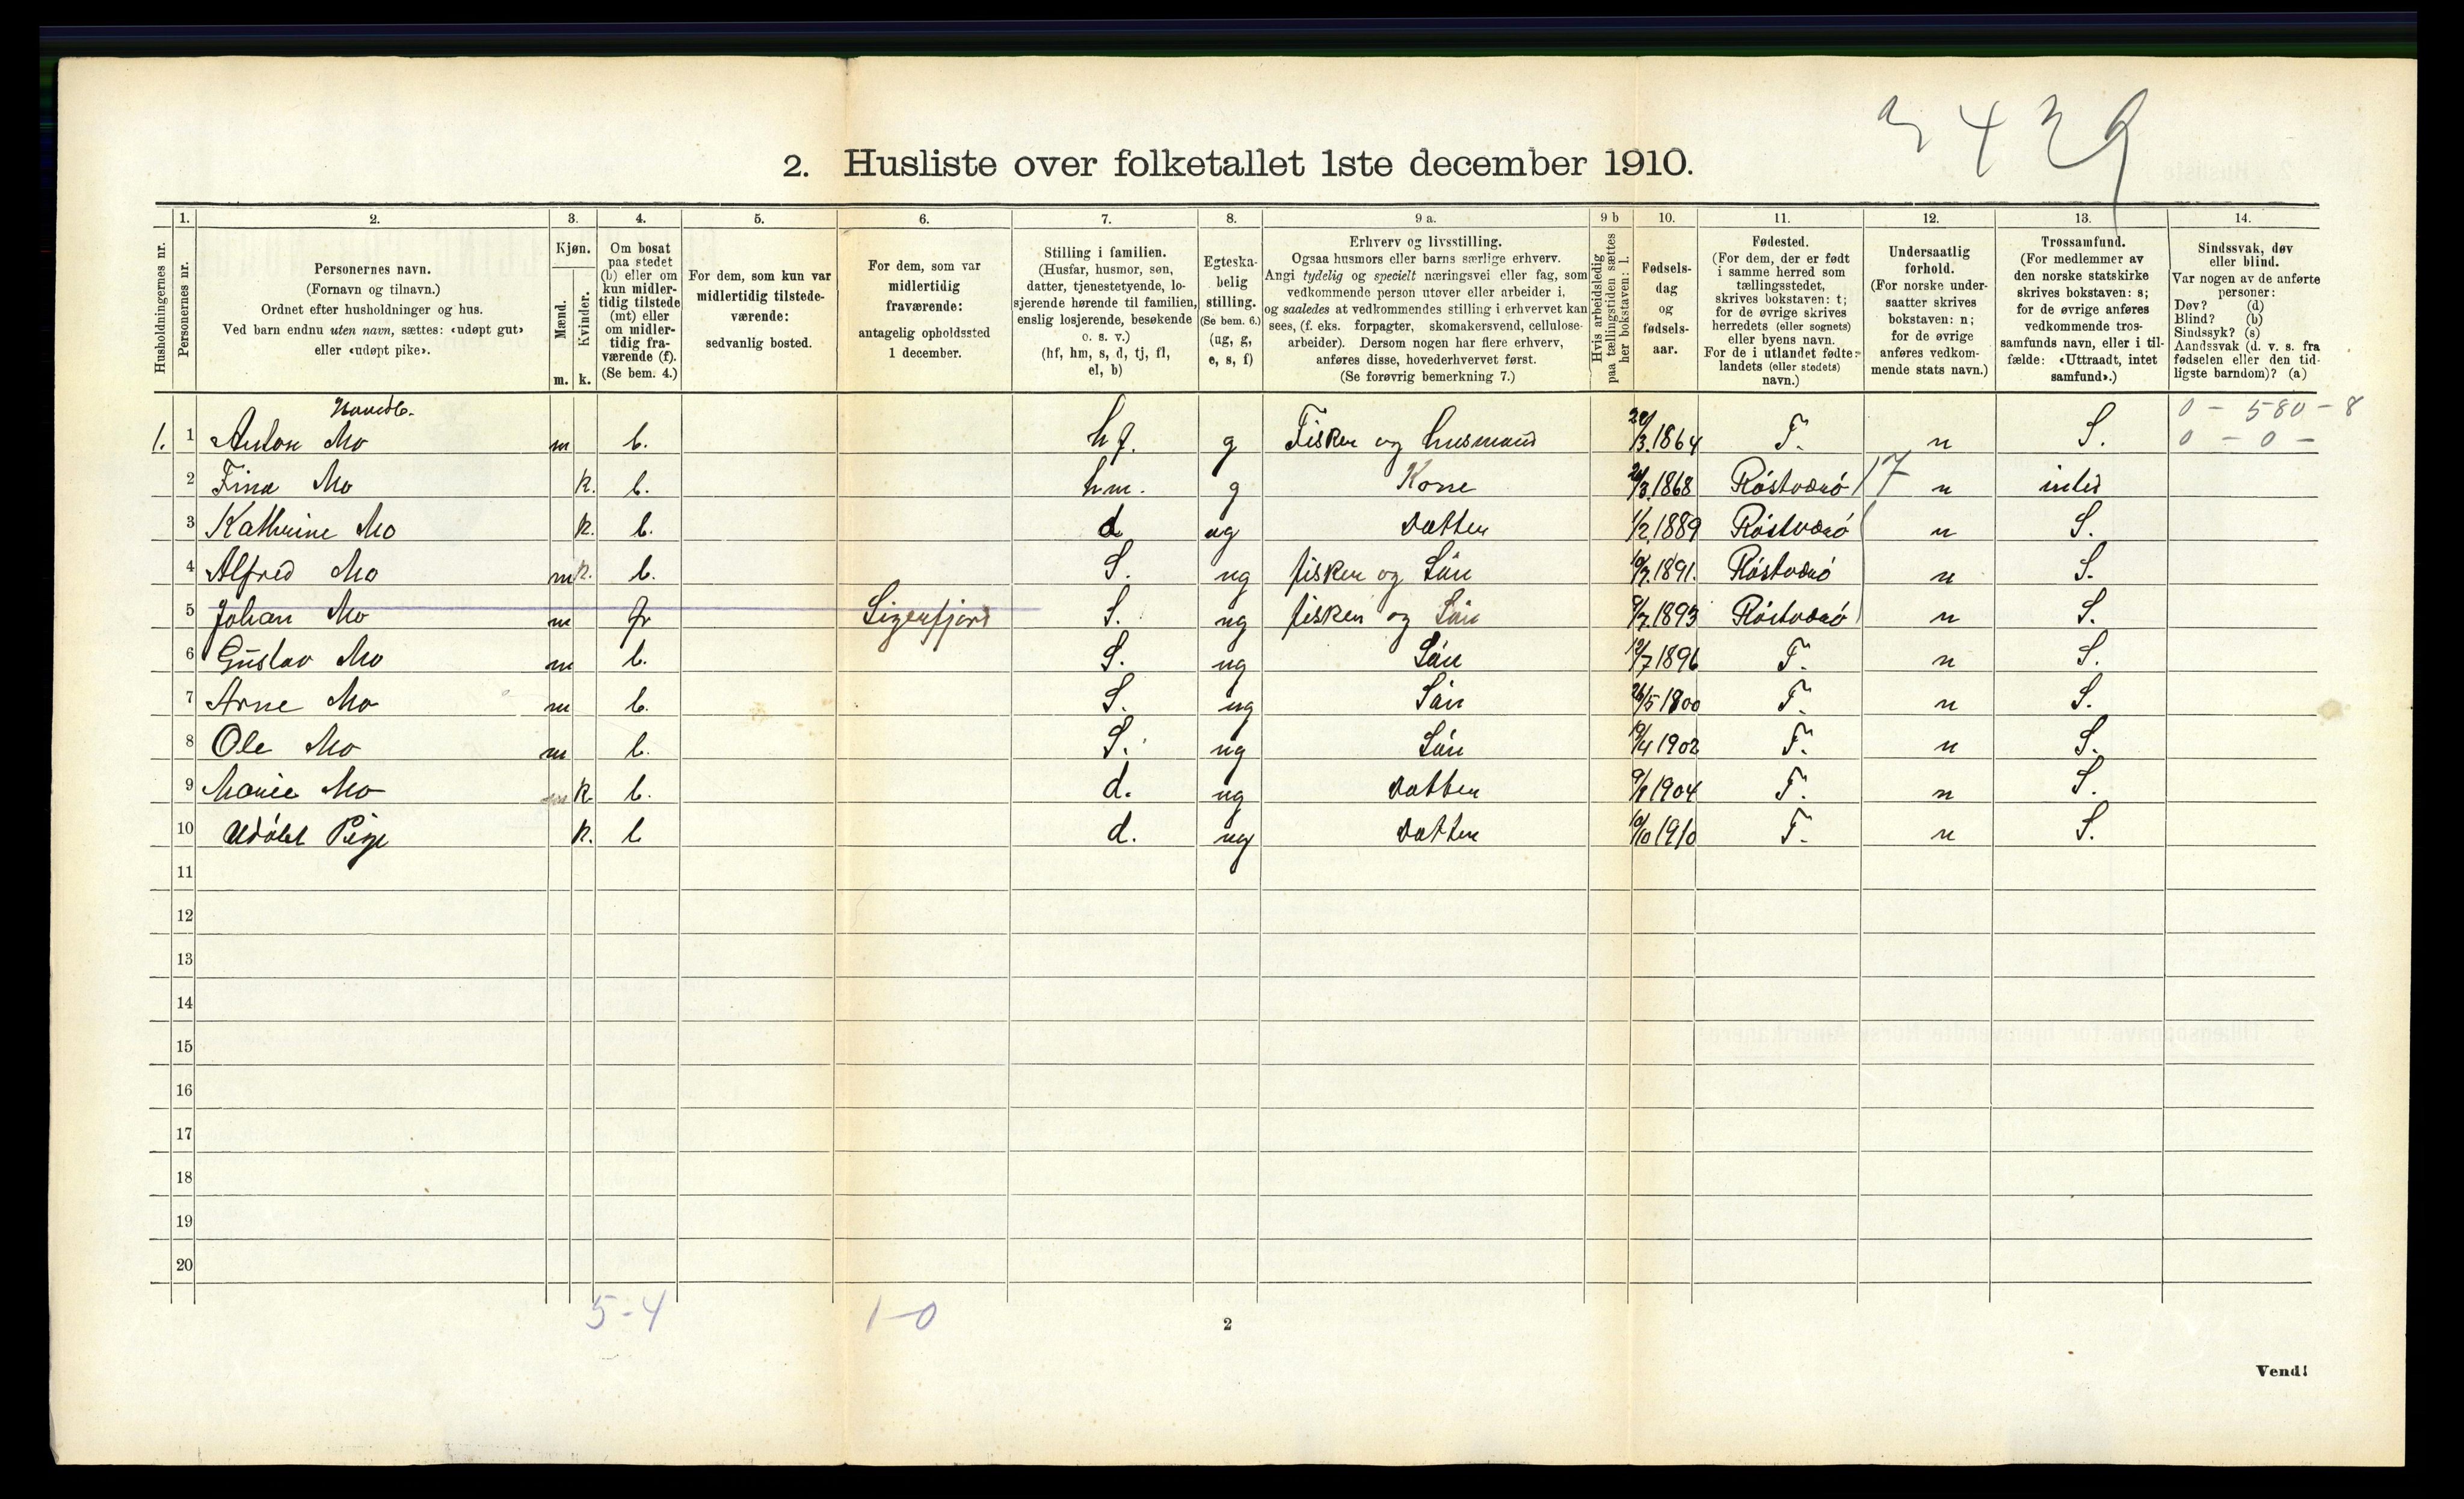 2. Husliste over folketallet 1ste december 1910.
Husholdningernes nr.
1.
Personernes nr.
2.
Personernes navn.
(Fornavn og tilnavn.)
Ordnet efter husholdninger og hus.
Ved barn endnu uten navn, sættes: «udøpt gut»
eller «udøpt pike».
3.
Kjøn.
Mænd.
Kvinder.
m. k.
4.
Om bosat
paa stedet
(b) eller om
kun midler-
tidig tilstede
(mt) eller
om midler-
tidig fra-
værende (f).
(Se bem. 4.)
5.
For dem, som kun var
midlertidig tilstede-
værende:
sedvanlig bosted.
6.
For dem, som var
midlertidig
fraværende:
antagelig opholdssted
1 december.
7.
Stilling i familien.
(Husfar, husmor, søn,
datter, tjenestetyende, lo-
sjerende hørende til familien,
enslig losjerende, besøkende
o. s. v.)
(hf, hm, s, d, tj, fl,
el, b)
8.
Egteska-
belig
stilling.
(Se bem. 6.)
(ug, g,
e, s, f)
9 a.
Erhverv og livsstilling.
Ogsaa husmors eller barns særlige erhverv.
Angi tydelig og specielt næringsvei eller fag, som
vedkommende person utøver eller arbeider i,
og saaledes at vedkommendes stilling i erhvervet kan
sees, (f. eks. forpagter, skomakersvend, cellulose-
arbeider). Dersom nogen har flere erhverv,
anføres disse, hovederhvervet først.
(Se forøvrig bemerkning 7.)
9 b
Hvis arbeidsledig
paa tællingstiden sættes
her bokstaven: l.
10.
Fødsels-
dag
og
fødsels-
aar.
11.
Fødested.
(For dem, der er født
i samme herred som
tællingsstedet,
skrives bokstaven: t;
for de øvrige skrives
herredets (eller sognets)
eller byens navn.
For de i utlandet fødte:
landets (eller stedets)
navn.)
12.
Undersaatlig
forhold.
(For norske under-
saatter skrives
bokstaven: n;
for de øvrige
anføres vedkom-
mende stats navn.)
13.
Trossamfund.
(For medlemmer av
den norske statskirke
skrives bokstaven: s;
for de øvrige anføres
vedkommende tros-
samfunds navn, eller i til-
fælde: «Uttraadt, intet
samfund».)
14.
Sindssvak, døv
eller blind.
Var nogen av de anførte
personer:
Døv? (d)
Blind? (b)
Sindssyk? (s)
Aandssvak (d. v. s. fra
fødselen eller den tid-
ligste barndom)? (a)
0 - 580 - 8
1. 1 Anton Mo m b. hf. g Fisker og husmand 1864 T. n S. 0 - 0 -
2 Fina Mo k. b. hm. g Kone 1868 Röstvær 17 n
3 Kathrine Mo k. b. d ug datter 1/2 1889 n S.
4 Alfred Mo m k. b. S. ug fisker og Sön 1891. n S.
5 Johan Mo m fr Sigerfjord S. ug fisker og Sön 1893 n S.
6 Gustav Mo m b. S. ug Sön 1896 T. n S.
7 Arne Mo m b. S. ug Sön 26/5 1900 T. n S.
8 Ole Mo m b. S. ug Sön 1902 T. n S.
9 Marie Mo k. b. d. ug datter 1904 T. n S.
10 Udöbt Pige k. b d. ug datter 1910 T. n S.
11
12
13
14
15
16
17
18
19
20
5-4 1-0
2
Vend!